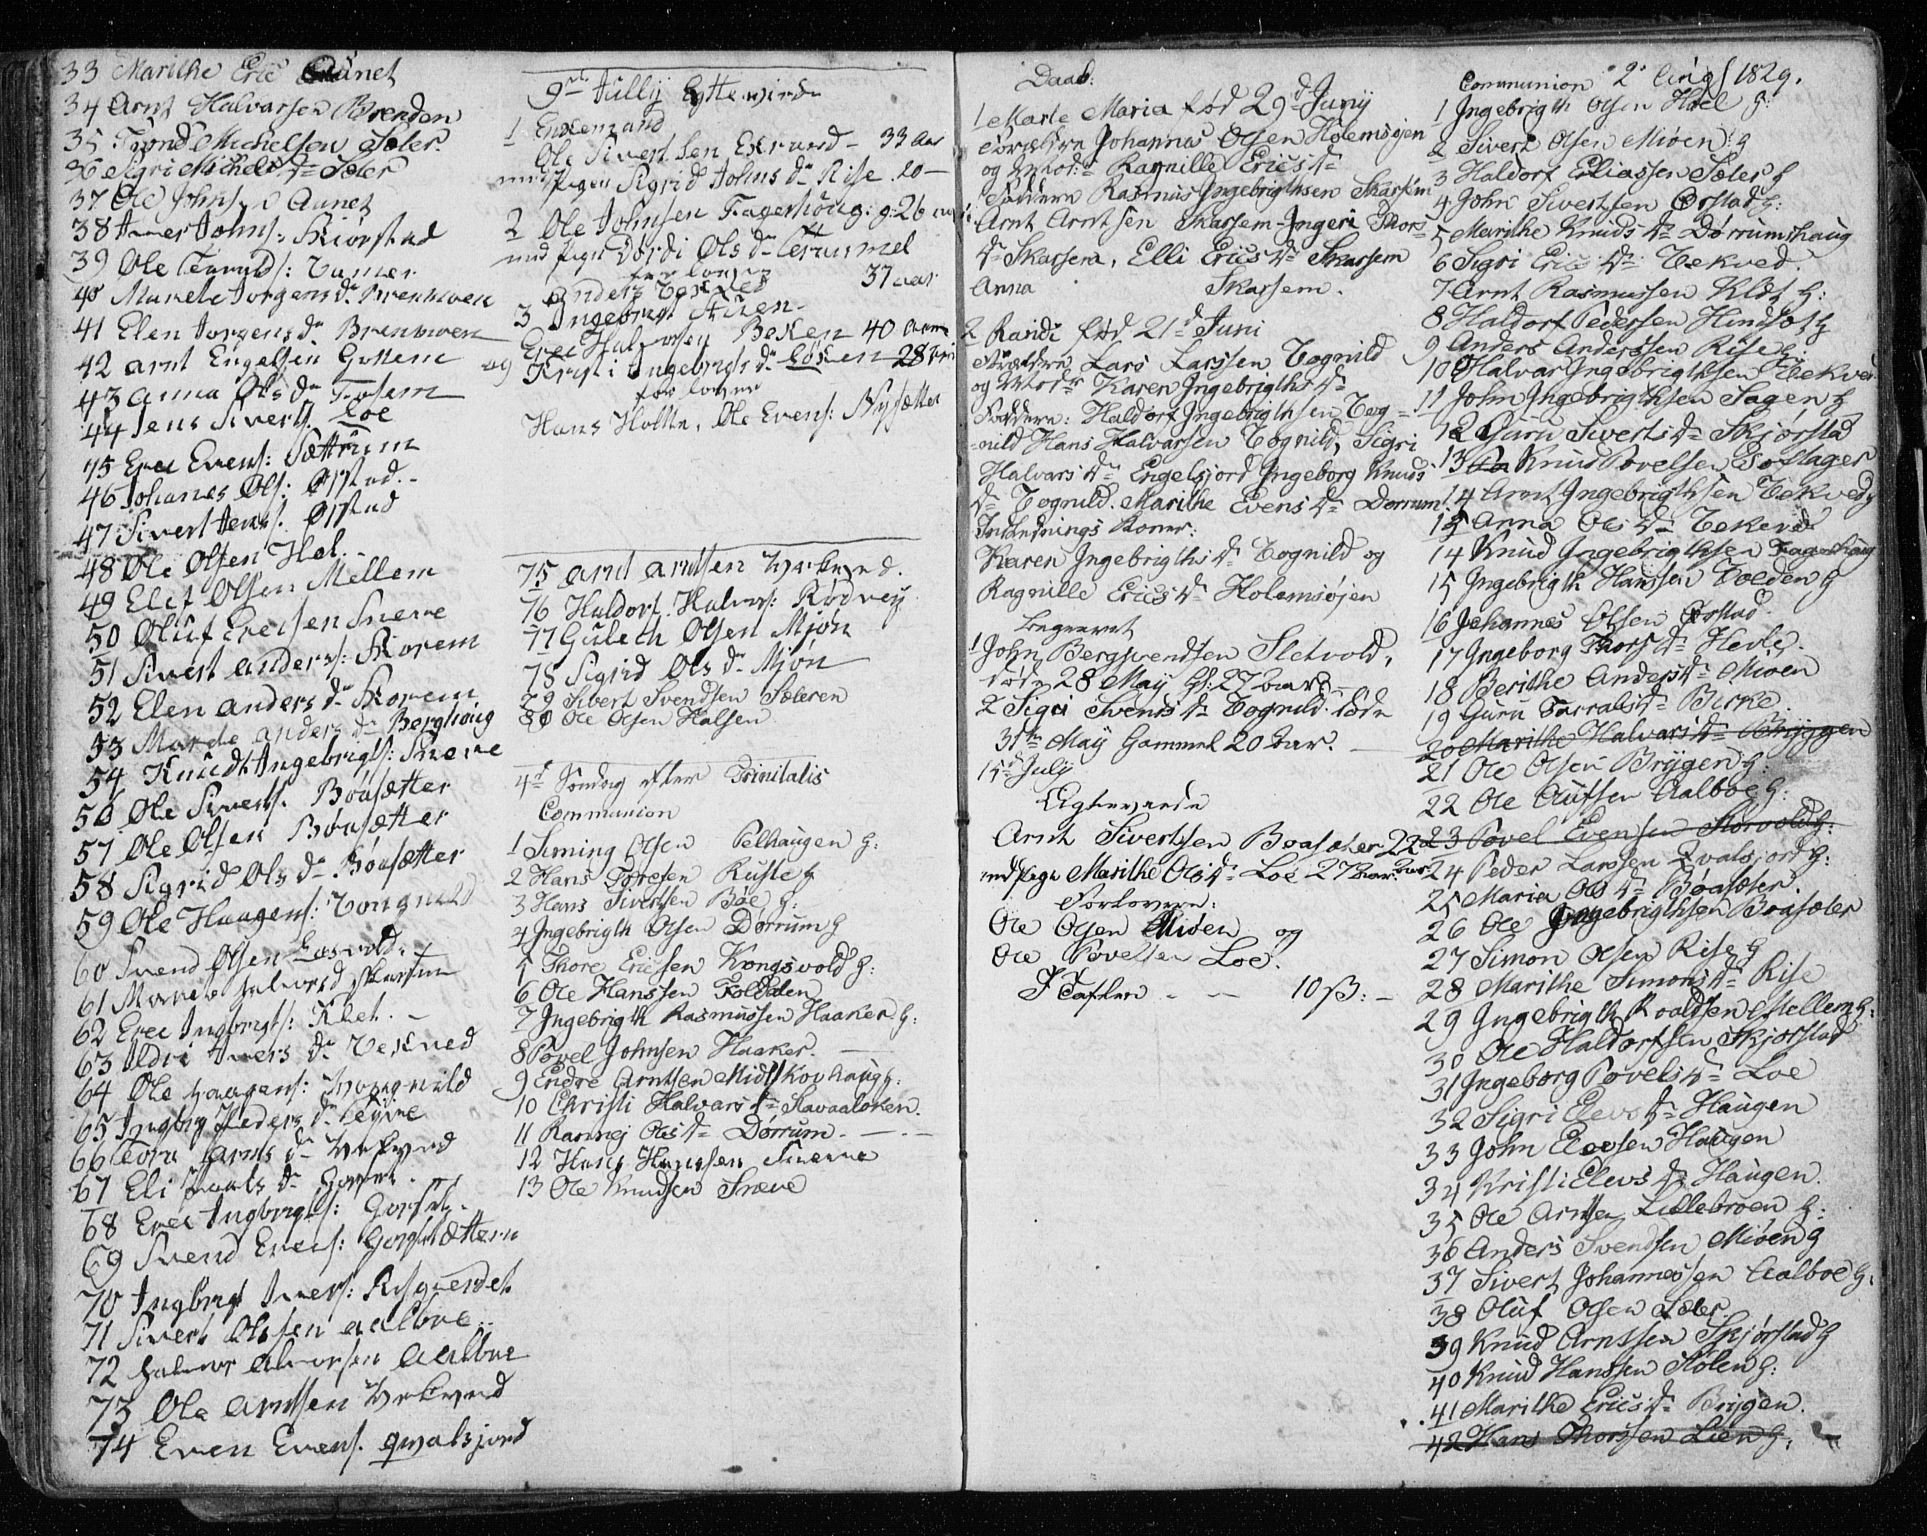 33 Marithe Eric Aunet
34 Arnt Halvarsen Brenden
35 Trond Michelsen Sæler
36 Sigri Michels Dr Sæler
37 Ole Johnsen Aunet
38 Iver Johns: Skiørstad
39 Ole
40 Marete Jorgens Dr
41 Elen Jorgens Dr
42 Arnt Engelsen Gottem
43 Anna Ols Dr Fosem
44 Jens Siverts. Loe
45 Eric Evens: Sættrum
46 Johanes Ols: Ørstad.
47 Sivert Jens. Ørstad
48 Ole Olsen Hol.
49 Elef Olsen Mellem
50 Oluf Ericsen Sneve
51 Sivert Anders: Skorem
52 Elen Anders Dr Skorem
53 Marete Anders Dr Berghoug
54 Knudt Ingebrigts: Sneve
56 Ole Siverts. Boasætter
57 Ole Olsen Boasætter
58 Sigrid Ols Dr Boasætter
59 Ole Haagens: Tongnild
60 Svend Olsen
61 Halvars Skarsem
62 Eric Ingbrigts: Klet.
63 Ildri Ivers Dr Vekved
64 Ole Haagens: Tongnild
65 Ingbor Peders Dr
66 Arnts Dr Vekved
67 Eli Dr
68 Eric Ingbrigts: Gorset.
69 Svend Evens: Gorsetættem
70 Ingbrigt Ivers: Risgierdet
71 Sivert Olssen Aalboe
72 Halvor Alvorsen Aalboe
73 Ole Arntsen Vekved
74 Even Evens. Qvalsjord
9de Jully Egtevirde
1 Enkemand
Ole Sivertsen - 33 Aar
med Pigen Sigrid Johns Dr Rise. 20 -
2 Ole Johnsen Fagerhoug. g: 26 aar
med Pigen Dordi Ols Dr
forlover 37 aar
Anders Vekved
3 Ingebrigt Stuen -
Eric Halvorsen Bekken 40 Aar
og Kristi Ingebrigts Dr Løkken 28 aar
forlover
Hans Holthe, Ole Evens: Nysætter
75 Arnt Arntsen Vekved.
76 Haldorf Halvors: Rødvey
77 Guleth Olsen Mjøn
78 Sigrid Ols Dr Mjøn
79 Sivert Svendsen Sæleren
80 Ole Olsen Halsen
4de Søndag efter Trinitatis
Communion
1 Siming Olsen Pelhaugen G:
2 Hans Toresen Ruste G
3 Hans Sivertsen Boe G:
4 Ingebrigth Olsen Dørrum G
5 Thore Ericsen Kongsvold G:
6 Ole Hanssen Foldalen
7 Ingebrigth Rasmussen Haaker G:
8 Povel Johnsen Haaker.
9 Endre Arntsen Midtskovhaug G:
10 Christi Halvars Dr Kavaaloken.
11 Rannej Ols Dr Dørrum.
12 Hans Hanssen Sneeve
13 Ole Knudsen Snæve
Daab:
1 Marte Maria fød 29d Junij
Forældre Johannes Olsen Holemsøjen
og Mod: Ragnille Erics Dr
Faddere Rasmus Ingebrigthsen Skarsem
Arnt Arntsen Skarsem Ingeri Thors
Dr Skarsem, Elli Erics Dr Skarsem
Anna Skarsem.
2 Randi fød 21d Juni
Forældre Lars Larssen Tognild
og Moder Karen Ingebrigths Dr
Faddere: Haldorf Ingebrigthsen Tog=
nild Hans Halvarsen Tognild, Sigri
Halvars Dr Engelsjord Ingeborg Knuds
Dr Tognild. Marithe Evens Dr Dørrum.
Indlednings Koner:
Karen Ingebrigths Dr Tognild og
Ragnille Erics Dr Holemsøjen
Begravet
1 John Bergsvendsen Sletvold,
døde 28 Maij Gl: 27 Aar
2 Sigri Svends Dr Tognild. døde
31te Maij Gammel 20 Aar.
15d July
Egteviede
Arnt Sivertsen Boasæter 22 Aar
med Pige Marithe Ols Dr Loe 27 Aar.
Forlovere:
Ole Olsen Miøen og
Ole Povelsen Loe.
I Taflen - - 10 ß: -
Communion 2d Augs 1829.
1 Ingebrigth Olsen Hoel G:
2 Sivert Olsen Miøen: G
3 Haldorf Eliassen Sæler G
4 John Sivertsen Ørstad G:
5 Marithe Knuds Dr Dørrumshaug
6 Sigri Erics Dr Vekved.
7 Arnt Rasmussen Klæt G:
8 Haldorf Pedersen Hindsæt G
9 Anders Anderssen Rise G:
10 Halvar Ingebrigthsen Vekved
11 John Ingebrigthsen Sagen G
12 Guru Siverts Dr Skjørstad
13 Knud Povelsen Goslager
14 Arnt Ingebrigthsen Vekved G
15 Anna Ols Dr Vekved
14 Knud Ingebrigthsen Fagerhaug
15 Ingebrigth Hanssen Volden G
16 Johannes Olsen Ørstad.
17 Ingeborg Thors Dr Hevle.
18 Berithe Anders Dr Miøen
19 Guru Dr Birke.
20 Marithe Halvars Dr Bryggen
21 Ole Olsen Brygen G:
22 Ole Olufsen Aalboe G:
23 Povel Evensen Storvold G:
24 Peder Larssen Qvalsjord G:
25 Maria Ols Dr Boasæter.
26 Ole Ingebrigthsen Boasæter
27 Simon Olsen Rise G
28 Marithe Simons Dr Rise
29 Ingebrigth Roaldsen Mellem G:
30 Ole Haldorfsen Skjørstad
31 Ingeborg Povels Dr Loe
32 Sigri Elevs Dr Haugen
33 John Elevsen Haugen
34 Kristi Elevs Dr Haugen.
35 Ole Arntsen Lillebroen G:
36 Anders Svendsen Miøen G
37 Sivert Johannessen Aalboe G:
38 Oluf Olsen Sæler.
39 Knud Arntssen Skjørstad G
40 Knud Hanssen Stølen G:
41 Marithe Erics Dr Brygen.
42 Hans Thorssen Lien G: